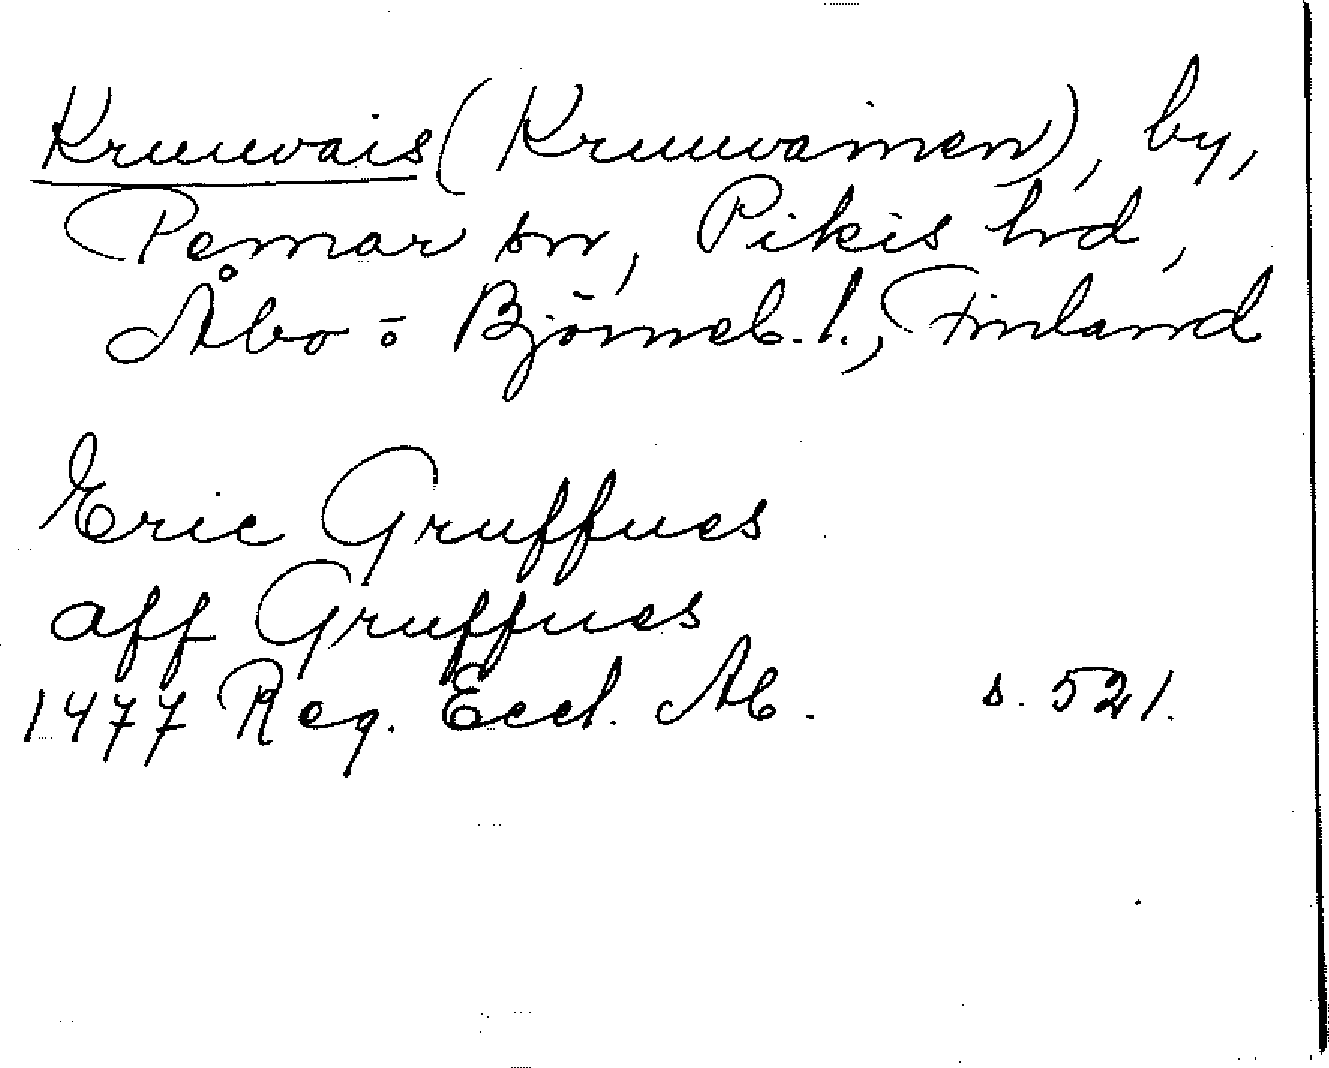 Kruuvais (Kruuvainen), by,
Pemar sn, Pikis hrd,
Åbo o Björneb. l., Finland
Eric Gruffues
aff Gruffues
1477 Reg. Eccl. Ab. s. 521.